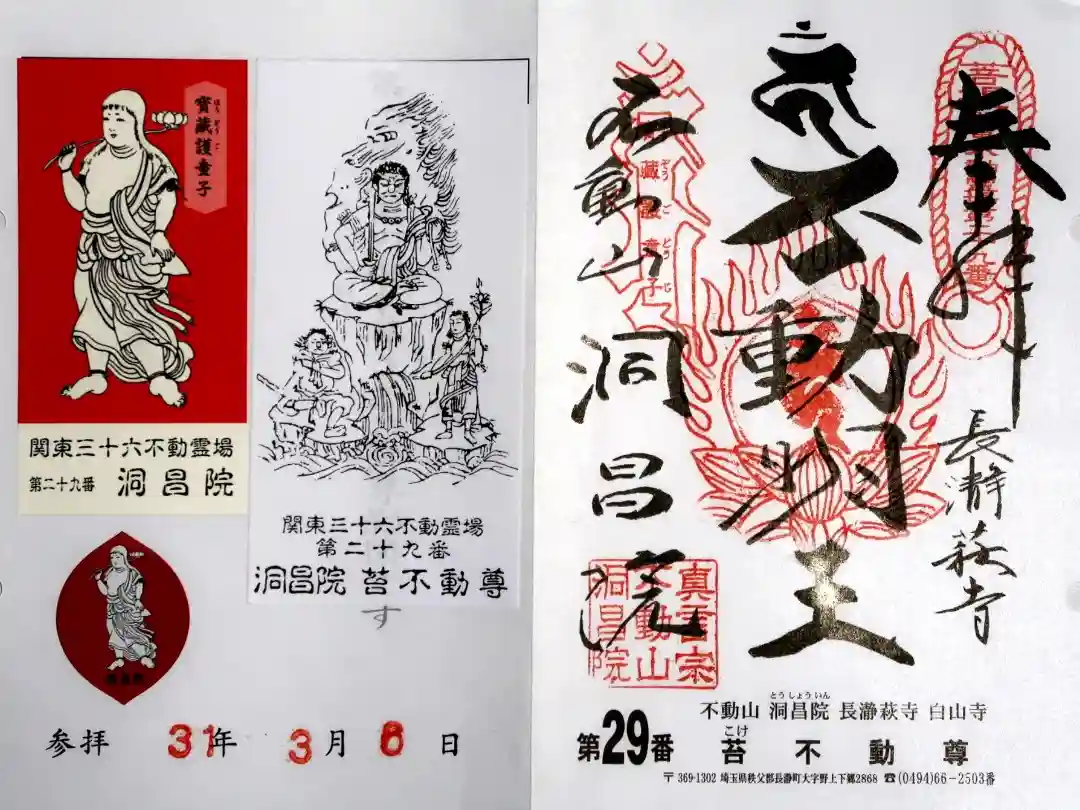 寳藏護童子
ほう ぞう ご
関東三十六不動霊場
第二十九番 洞昌院
関東三十六不動霊場
第二十九番
洞昌院 苔不動尊
す
参拝 31年 3月 6日
奉拝
長瀞萩寺
不動明王
不動山 洞昌院
藏護童子
ぞう ご どう じ
真言宗
不動山
洞昌院
とうしょういん
不動山 洞昌院 長瀞萩寺 白山寺
こけ
第29番 苔不動尊
〒369-1302 埼玉県秩父郡長瀞町大字野上下郷2868 ☎(0494)66-2503番